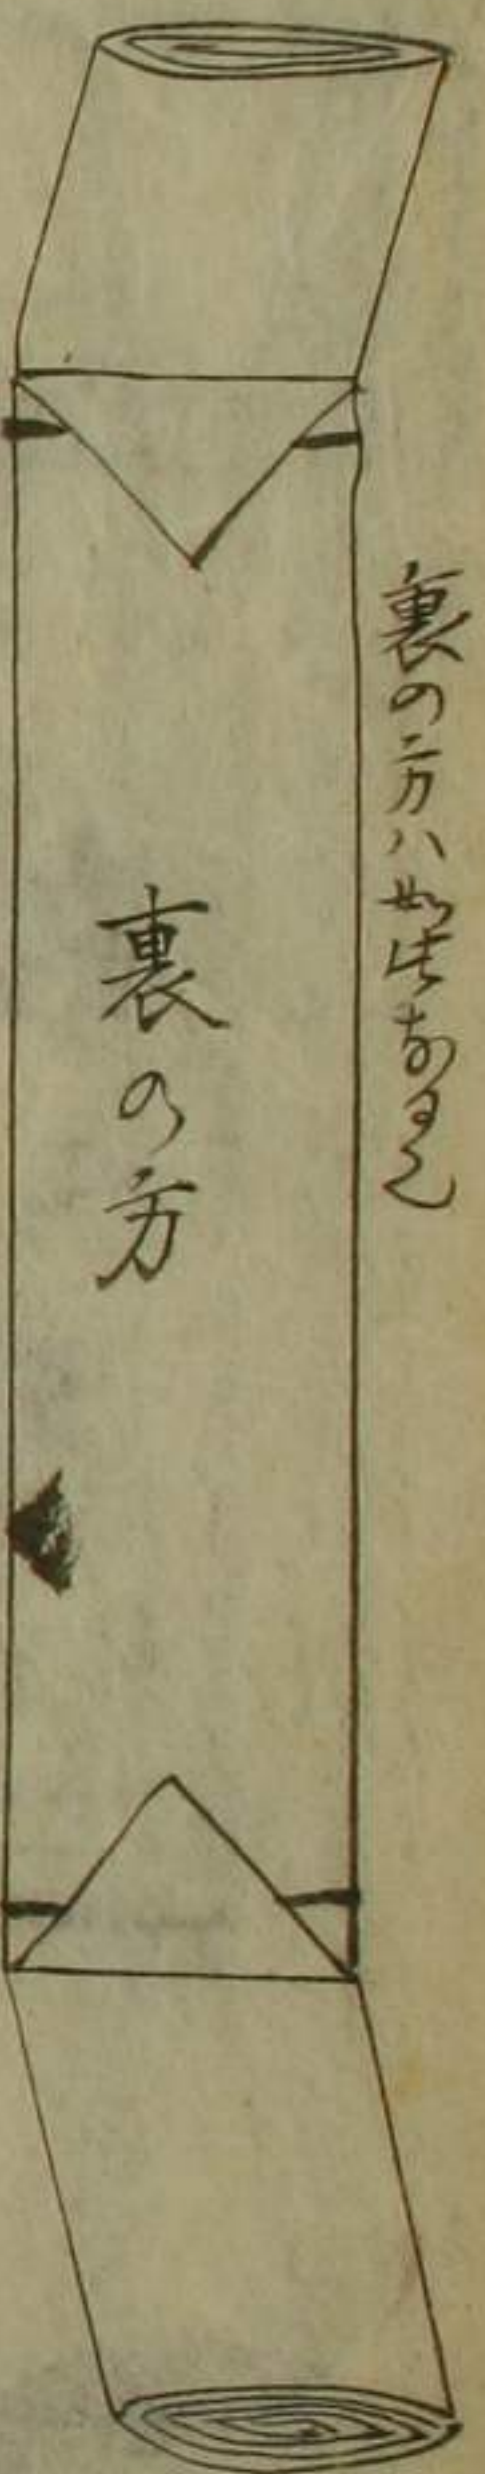 裏の方ハ如此なる也
裏の方